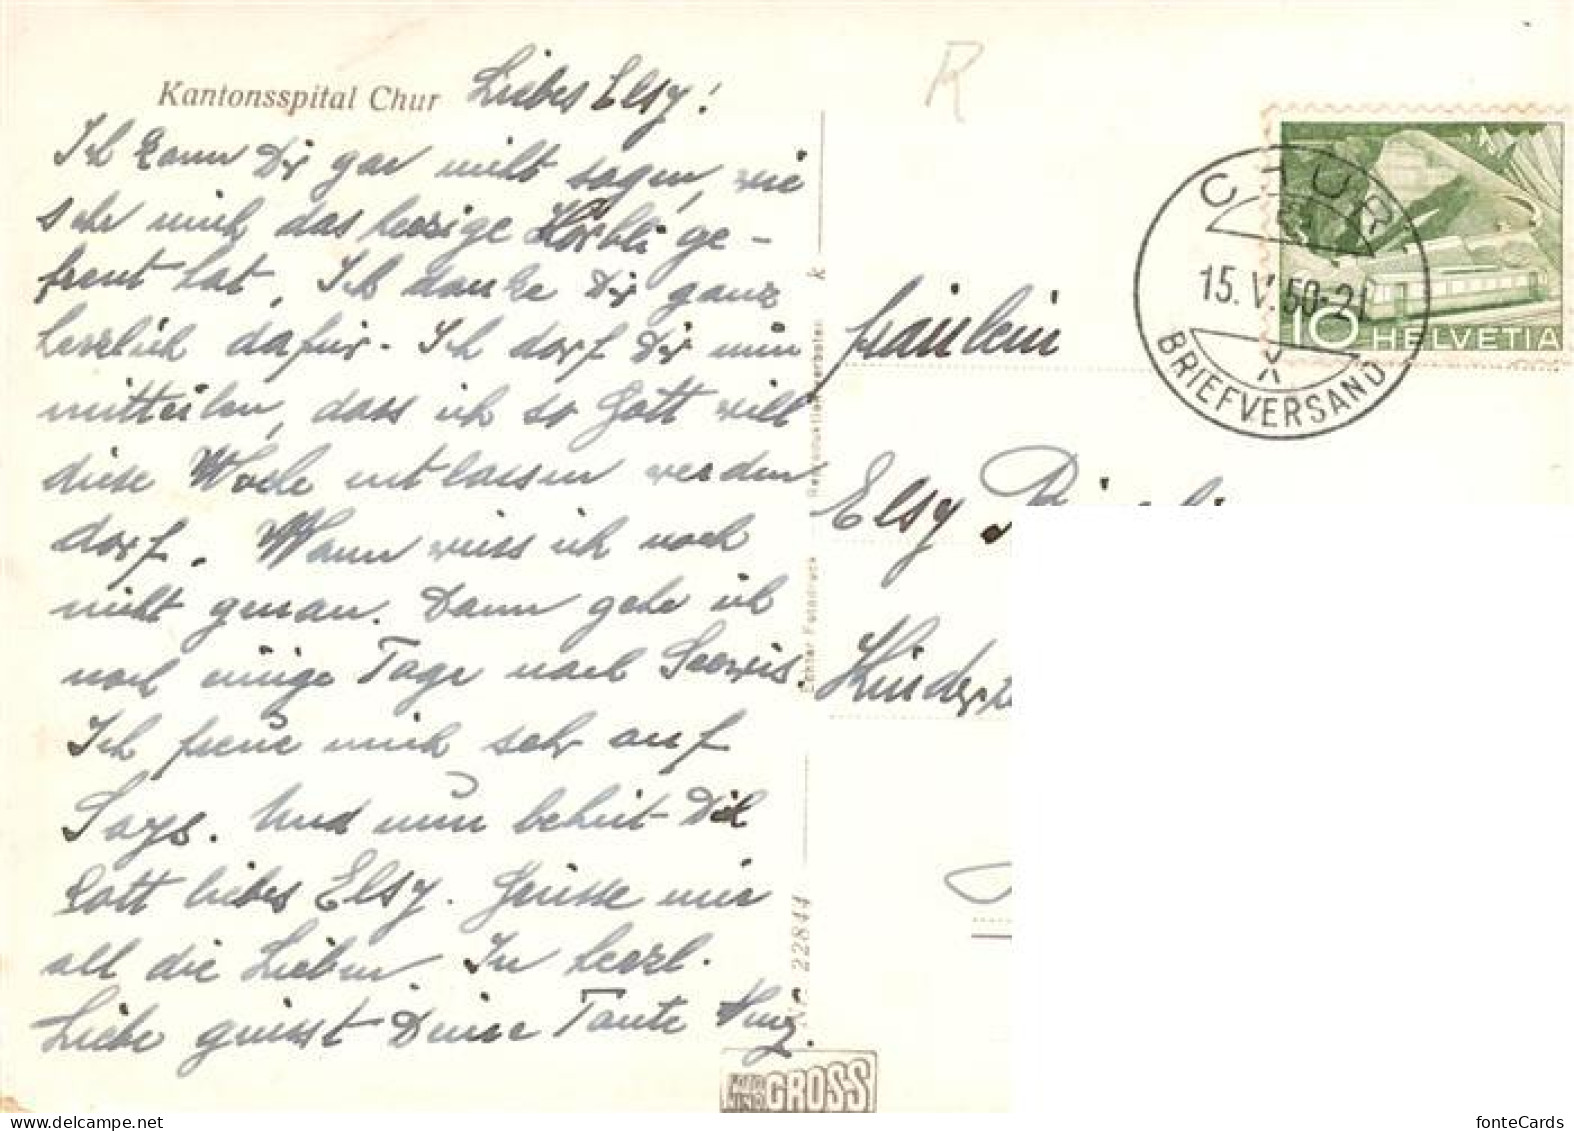 Kantonsspital Chur
Liebes Elsy!
Ich kann Dir gar nicht sagen, wie
sehr mich das herzige Körbli ge-
freut hat. Ich danke Dir ganz
herzlich dafür. Ich darf Dir nun
mitteilen, dass ich so Gott will
diese Woche entlassen werden
darf. Wann weiss ich noch
nicht genau. Dann gehe ich
noch einige Tage nach Seewis.
Ich freue mich sehr auf
Says. Und nun behüt Dich
Gott liebes Elsy. Grüsse mir
all die Lieben. In herzl.
Liebe grüsst Deine Tante
Echter Fotodruck Reproduktion verboten k
Nr. 22844
FOTO
GROSS
R
CHUR
15.V.50-21
BRIEFVERSAND
10 HELVETIA
Fräulein
Elsy
fonteCards